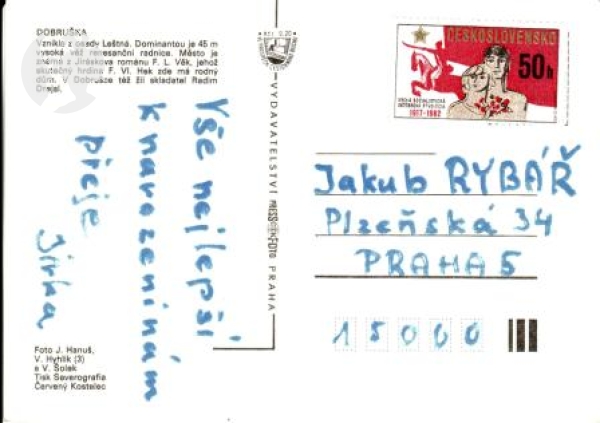 DOBRUŠKA
Vzniklo z osady Leštná. Dominantou je 45 m
vysoká věž renesanční radnice. Město je
známé z Jiráskova románu F. L. Věk, jehož
skutečný hrdina F. Vl. Hek zde má rodný
dům. V Dobrušce též žil skladatel Radim
Drejsl.
Vše nejlepší
k narozeninám
přeje
Jirka
Foto J. Hanuš,
V. Hyhlík (3)
a V. Šolek
Tisk Severografia
Červený Kostelec
VYDAVATELSTVÍ PRESSFOTO PRAHA
ČESKOSLOVENSKO
50h
VELKÁ SOCIALISTICKÁ
ŘÍJNOVÁ REVOLUCE
1917-1982
Jakub RYBÁŘ
Plzeňská 34
PRAHA 5
15000